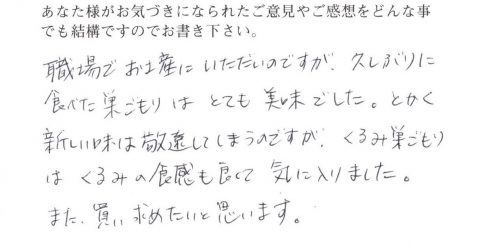 あなた様がお気づきになられたご意見やご感想をどんな事
でも結構ですのでお書き下さい。
職場でお土産にいただいのですが、久しぶりに
食べた巣ごもりはとても美味でした。とかく
新しい味は敬遠してしまうのですが、くるみ巣ごもり
はくるみの食感も良くて気に入りました。
また、買い求めたいと思います。